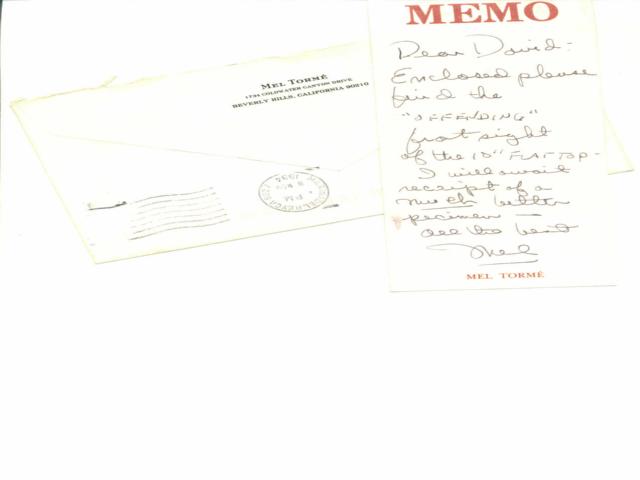 MEL TORMÉ
1734 COLDWATER CANYON DRIVE
BEVERLY HILLS, CALIFORNIA 90210
MEMO
Dear David -
Enclosed please
find the
"OFFENDING"
front sight
of the 10" FLAT TOP -
I will await
receipt of a
much better
specimen —
all the best
Mel
MEL TORMÉ